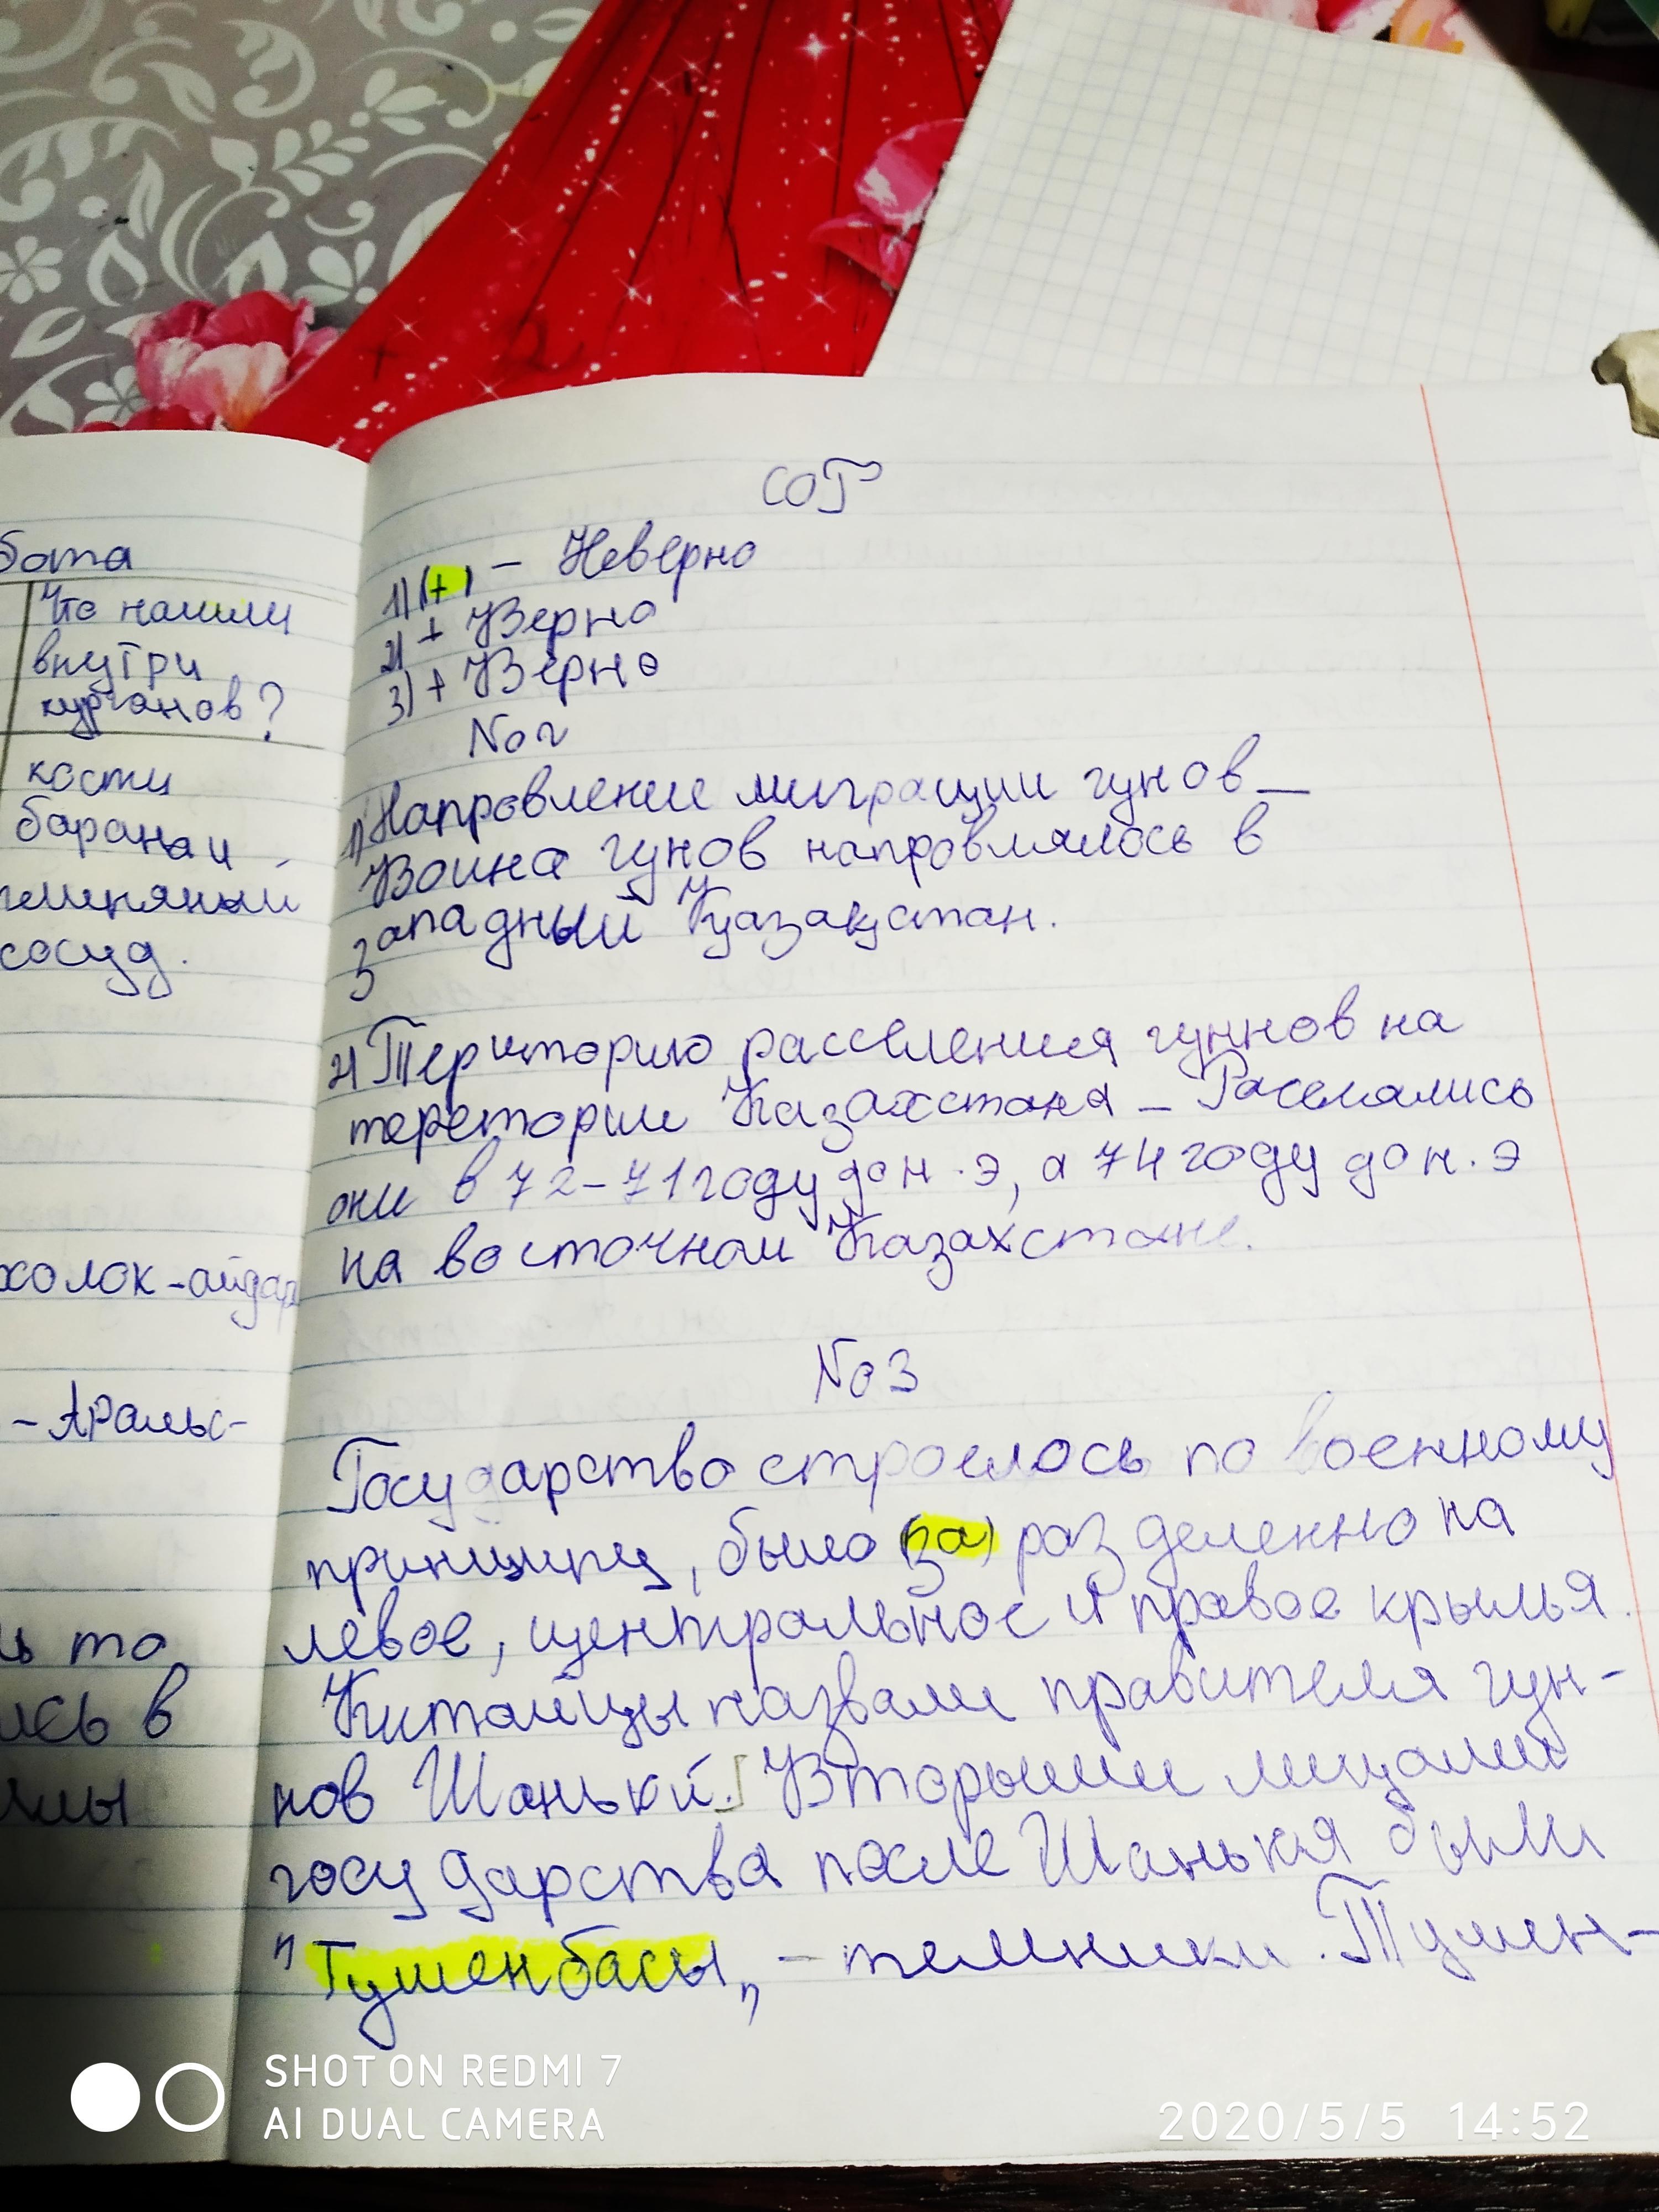 бота
Что нашли
внутри
курганов?
кости
барана и
сосуд.
холок-айдар
- Аральс-
ь то
ись в
СОР
1) (+) - Неверно
2) + Верно
3) + Верно
No 2
1) Направление миграции гунов _
Воина гунов направлялось в
западный Қазақстан.
2) Територию расселения гуннов на
теретории Казахстана - Расселялись
они в 72-71 году до н.э, а 74 году до н.э
на восточном Казахстане.
No 3
Государство строелось по военному
принципу, было (за) разделенно на
левое, центральное и правое крылья.
Китайцы назвали правителя гун-
нов Шаньюй. Вторыми лицами
государства после Шанькя были
"Туменбасы„ - темники. Тумен-
SHOT ON REDMI 7
AI DUAL CAMERA
2020/5/5 14:52